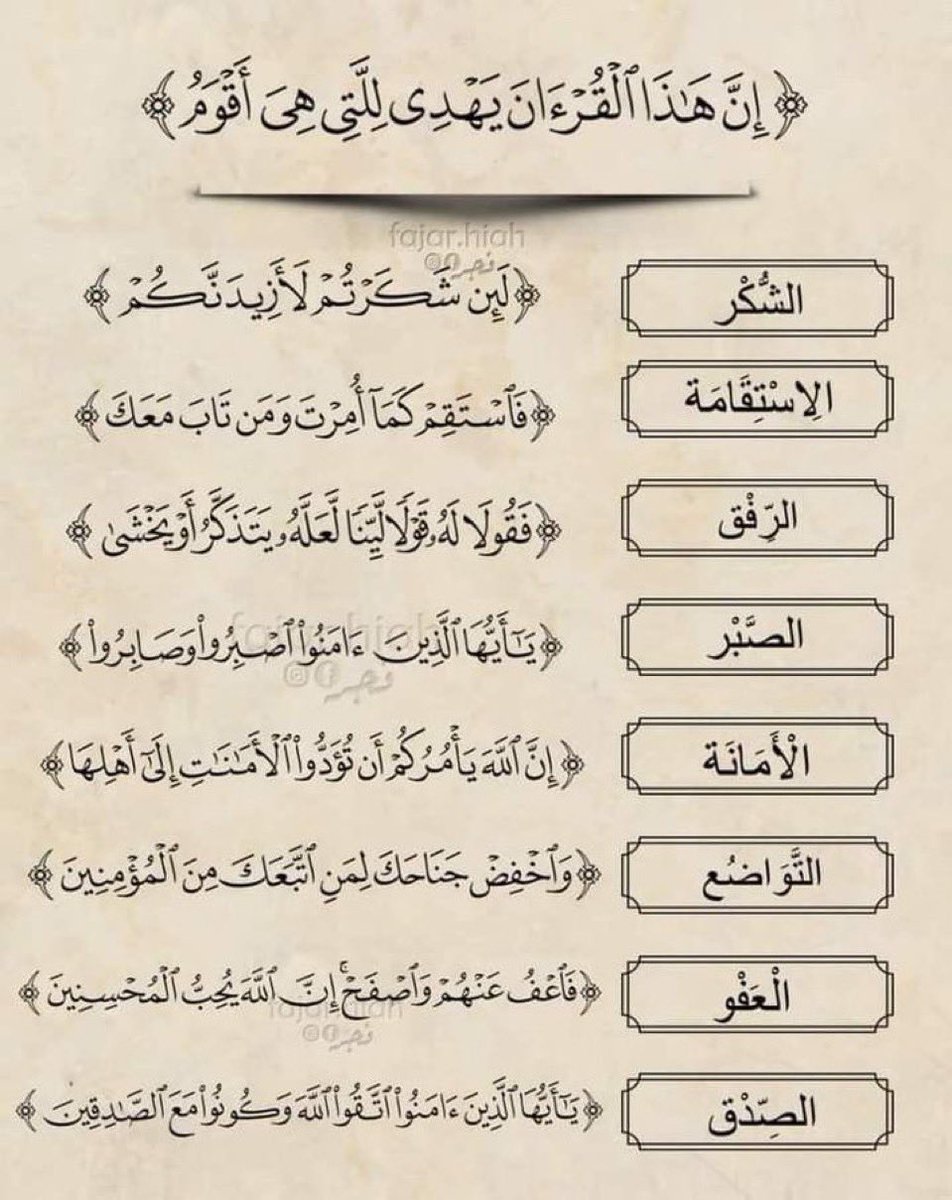 ﴿إِنَّ هَٰذَا ٱلْقُرْءَانَ يَهْدِى لِلَّتِى هِىَ أَقْوَمُ﴾
fajar.hiah
فجر
الشُّكْر ﴿لَئِن شَكَرْتُمْ لَأَزِيدَنَّكُمْ﴾
الِاسْتِقَامَة ﴿فَٱسْتَقِمْ كَمَآ أُمِرْتَ وَمَن تَابَ مَعَكَ﴾
الرِّفْق ﴿فَقُولَا لَهُۥ قَوْلًا لَّيِّنًا لَّعَلَّهُۥ يَتَذَكَّرُ أَوْ يَخْشَىٰ﴾
fajar.hiah
الصَّبْر ﴿يَٰٓأَيُّهَا ٱلَّذِينَ ءَامَنُوا۟ ٱصْبِرُوا۟ وَصَابِرُوا۟﴾
فجر
الْأَمَانَة ﴿إِنَّ ٱللَّهَ يَأْمُرُكُمْ أَن تُؤَدُّوا۟ ٱلْأَمَٰنَٰتِ إِلَىٰٓ أَهْلِهَا﴾
التَّوَاضُع ﴿وَٱخْفِضْ جَنَاحَكَ لِمَنِ ٱتَّبَعَكَ مِنَ ٱلْمُؤْمِنِينَ﴾
الْعَفْو ﴿فَٱعْفُ عَنْهُمْ وَٱصْفَحْ ۚ إِنَّ ٱللَّهَ يُحِبُّ ٱلْمُحْسِنِينَ﴾
fajar.hiah
فجر
الصِّدْق ﴿يَٰٓأَيُّهَا ٱلَّذِينَ ءَامَنُوا۟ ٱتَّقُوا۟ ٱللَّهَ وَكُونُوا۟ مَعَ ٱلصَّٰدِقِينَ﴾